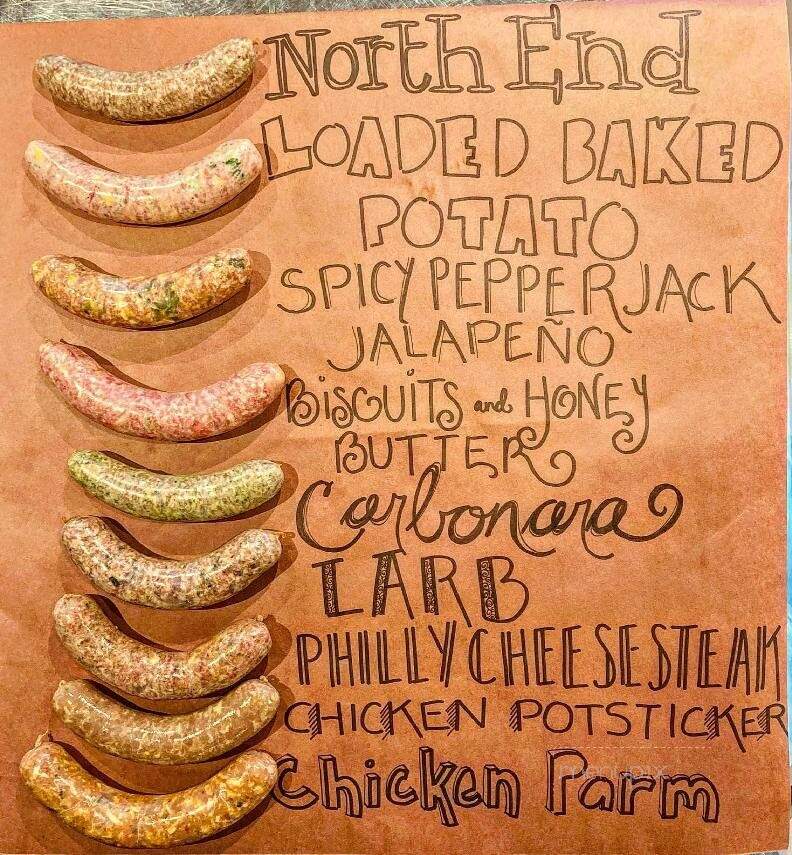 North End
LOADED BAKED
POTATO
SPICY PEPPER JACK
JALAPEÑO
BISCUITS and HONEY
BUTTER
Carbonara
LARB
PHILLY CHEESESTEAK
CHICKEN POTSTICKER
Chicken Parm